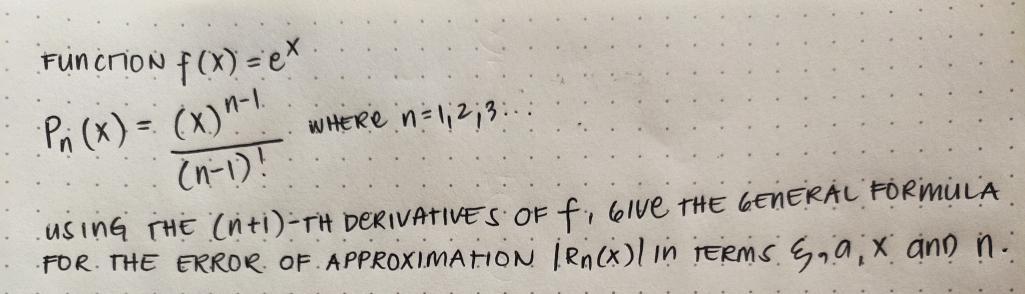 FUNCTION f(x) = e^x
Pn(x) = (x)^n-1 / (n-1)! WHERE n=1,2,3...
USING THE (n+1)-TH DERIVATIVES OF f, GIVE THE GENERAL FORMULA
FOR THE ERROR OF APPROXIMATION |Rn(x)| IN TERMS ξ, a, x AND n.